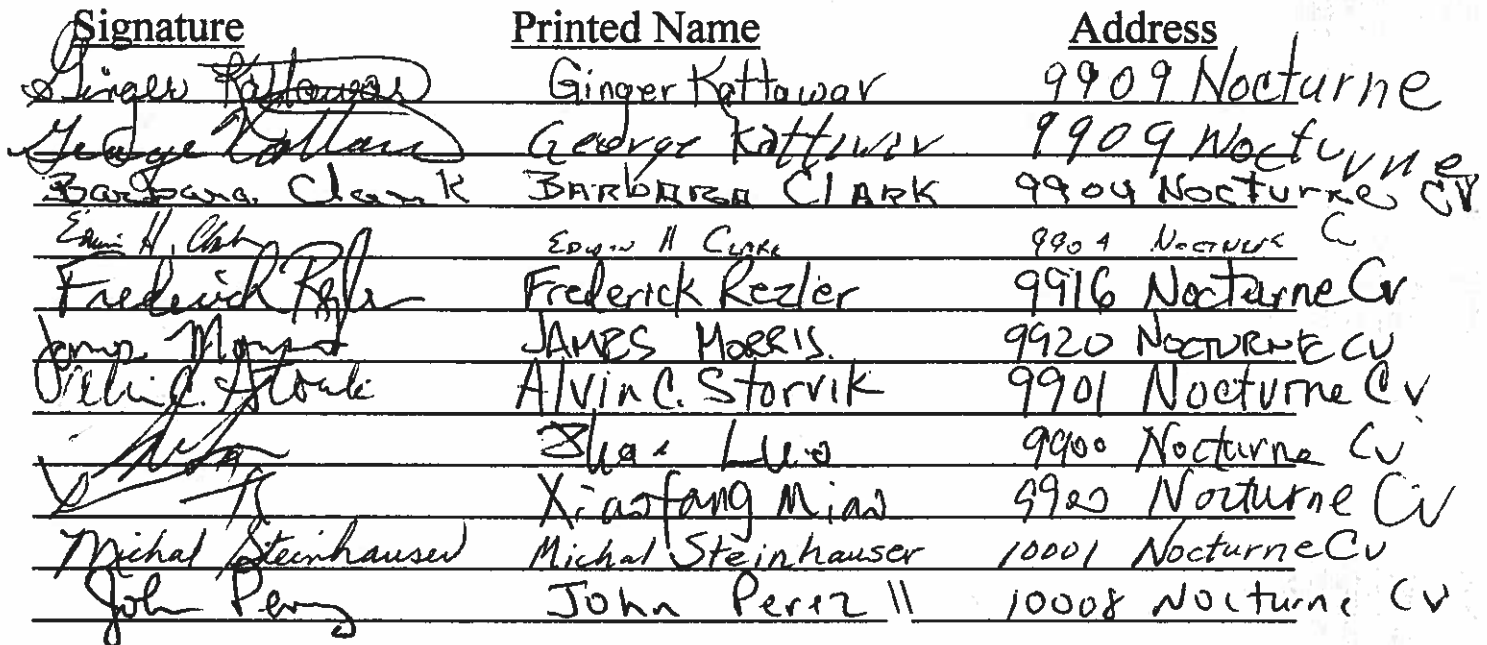 Signature Printed Name Address
Ginger Kattawar Ginger Kattawar 9909 Nocturne
George Kattawar George Kattawar 9909 Nocturne
Barbara Clark BARBARA CLARK 9904 Nocturne CV
Edwin H. Clark EDWIN H CLARK 9904 NOCTURNE C
Frederick Rezler Frederick Rezler 9916 Nocturne Cv
James Morris JAMES MORRIS. 9920 NOCTURNE CV
Alvin C. Storvik Alvin C. Storvik 9901 Nocturne Cv
Luo 9900 Nocturne Cv
Xiaofang Miao Nocturne Cv
Michal Steinhauser Michal Steinhauser 10001 Nocturne Cv
John Perez John Perez II 10008 Nocturne Cv